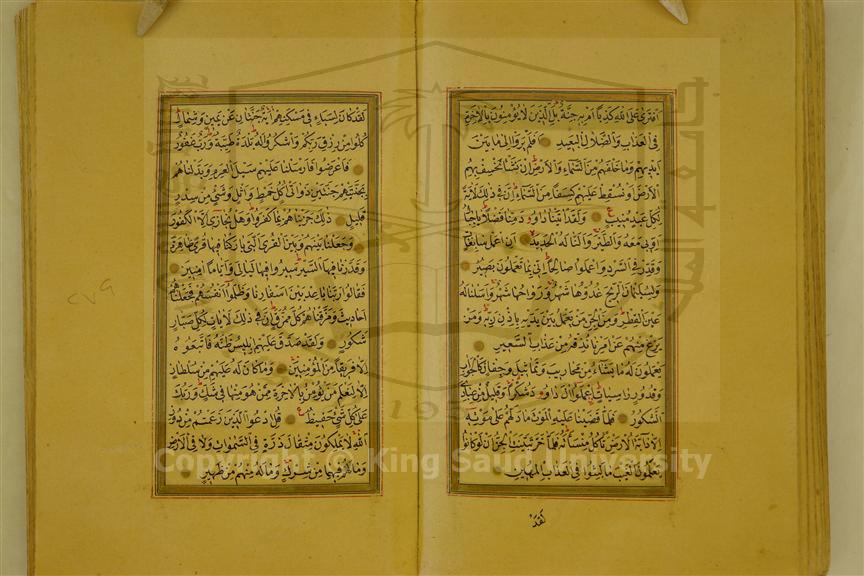 افترى على الله كذبا ام به جنة بل الذين لا يؤمنون بالاخرة
في العذاب والضلال البعيد افلم يروا الى ما بين
ايديهم وما خلفهم من السماء والارض ان نشأ نخسف بهم
الارض او نسقط عليهم كسفا من السماء ان في ذلك لاية
لكل عبد منيب ولقد اتينا داود منا فضلا يا جبال
اوبي معه والطير والنا له الحديد ان اعمل سابغات
وقدر في السرد واعملوا صالحا اني بما تعملون بصير
ولسليمان الريح غدوها شهر ورواحها شهر واسلنا له
عين القطر ومن الجن من يعمل بين يديه باذن ربه ومن
يزغ منهم عن امرنا نذقه من عذاب السعير
يعملون له ما يشاء من محاريب وتماثيل وجفان كالجواب
وقدور راسيات اعملوا ال داود شكرا وقليل من عبادي
الشكور فلما قضينا عليه الموت ما دلهم على موته
الا دابة الارض تاكل منسأته فلما خر تبينت الجن ان لو كانوا
يعلمون الغيب ما لبثوا في العذاب المهين
لقد
لقد كان لسباء في مسكنهم اية جنتان عن يمين وشمال
كلوا من رزق ربكم واشكروا له بلدة طيبة ورب غفور
فاعرضوا فارسلنا عليهم سيل العرم وبدلناهم
بجنتيهم جنتين ذواتي اكل خمط واثل وشيء من سدر
قليل ذلك جزيناهم بما كفروا وهل نجازي الا الكفور
وجعلنا بينهم وبين القرى التي باركنا فيها قرى ظاهرة
وقدرنا فيها السير سيروا فيها ليالي واياما امنين
فقالوا ربنا باعد بين اسفارنا وظلموا انفسهم فجعلناهم
احاديث ومزقناهم كل ممزق ان في ذلك لايات لكل صبار
شكور ولقد صدق عليهم ابليس ظنه فاتبعوه
الا فريقا من المؤمنين وما كان له عليهم من سلطان
الا لنعلم من يؤمن بالاخرة ممن هو منها في شك وربك
على كل شيء حفيظ قل ادعوا الذين زعمتم من دون
الله لا يملكون مثقال ذرة في السموات ولا في الارض
وما لهم فيهما من شرك وما له منهم من ظهير
٢٧٩
Copyright © King Saud University